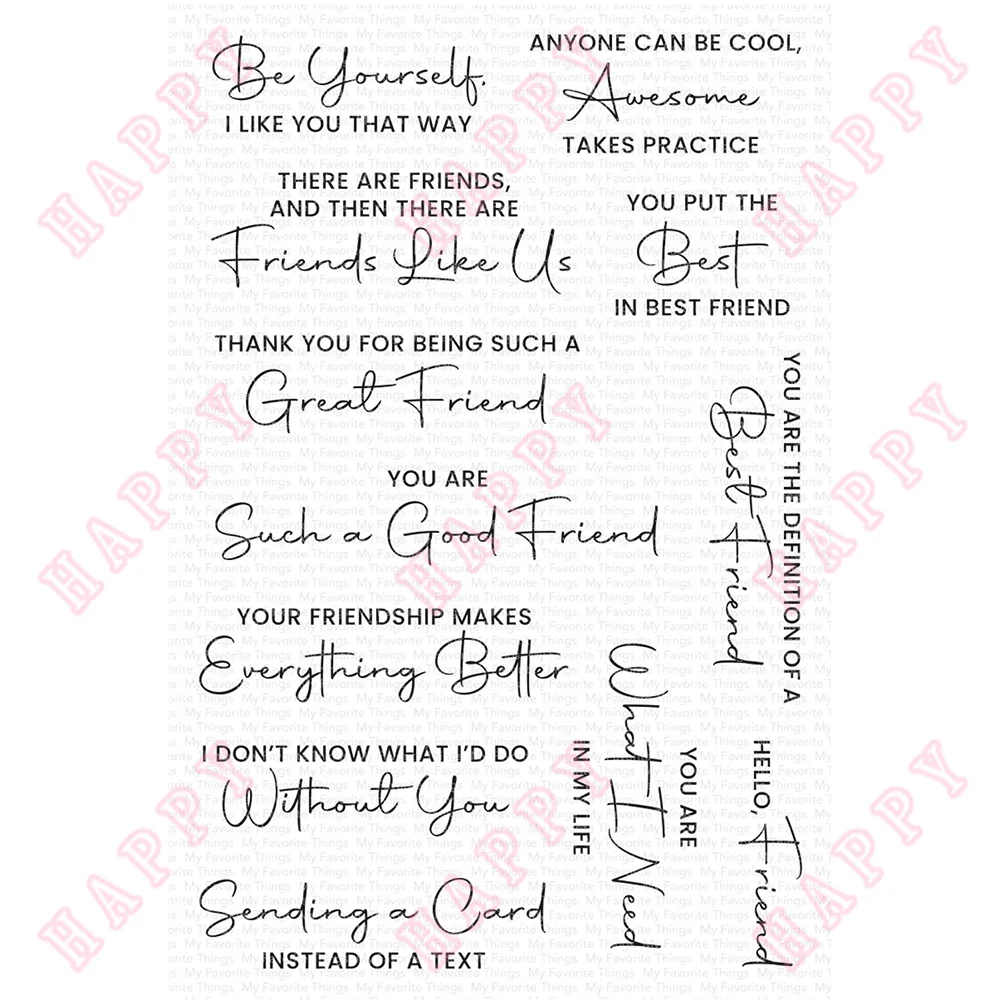 Be Yourself.
I LIKE YOU THAT WAY
ANYONE CAN BE COOL,
Awesome
TAKES PRACTICE
THERE ARE FRIENDS,
AND THEN THERE ARE
Friends Like Us
YOU PUT THE
Best
IN BEST FRIEND
THANK YOU FOR BEING SUCH A
Great Friend
YOU ARE THE DEFINITION OF A
Best Friend
YOU ARE
Such a Good Friend
YOUR FRIENDSHIP MAKES
Everything Better
I DON'T KNOW WHAT I'D DO
Without You
YOU ARE
What I Need
IN MY LIFE
HELLO,
Friend
Sending a Card
INSTEAD OF A TEXT
HAPPY
HAPPY
HAPPY
HAPPY
HAPPY
HAPPY
HAPPY
HAPPY
HAPPY
My Favorite Things